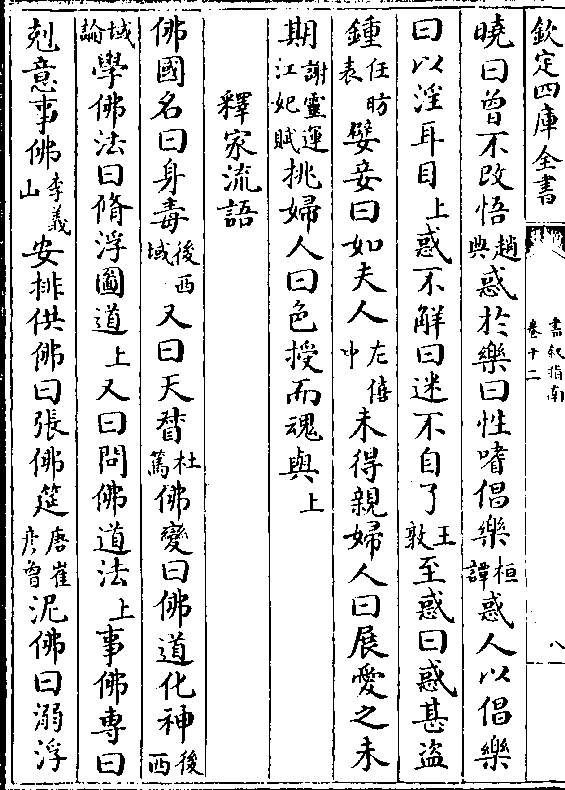 欽定四庫全書
書叙指南
卷十二
八
曉曰曾不改悟趙典惑於樂曰性嗜倡樂桓譚惑人以倡樂
曰以淫耳目上惑不解曰迷不自了王敦至惑曰惑甚盜
鍾任昉表嬖妾曰如夫人左僖冲未得親婦人曰展愛之未
期謝靈運江妃賦挑婦人曰色授而魂與上
釋家流語
佛國名曰身毒後西域又曰天督杜篤佛變曰佛道化神後西
域論學佛法曰脩浮圖道上又曰問佛道法上事佛專曰
剋意事佛李義山安排供佛曰張佛筵唐崔彦曾泥佛曰溺浮